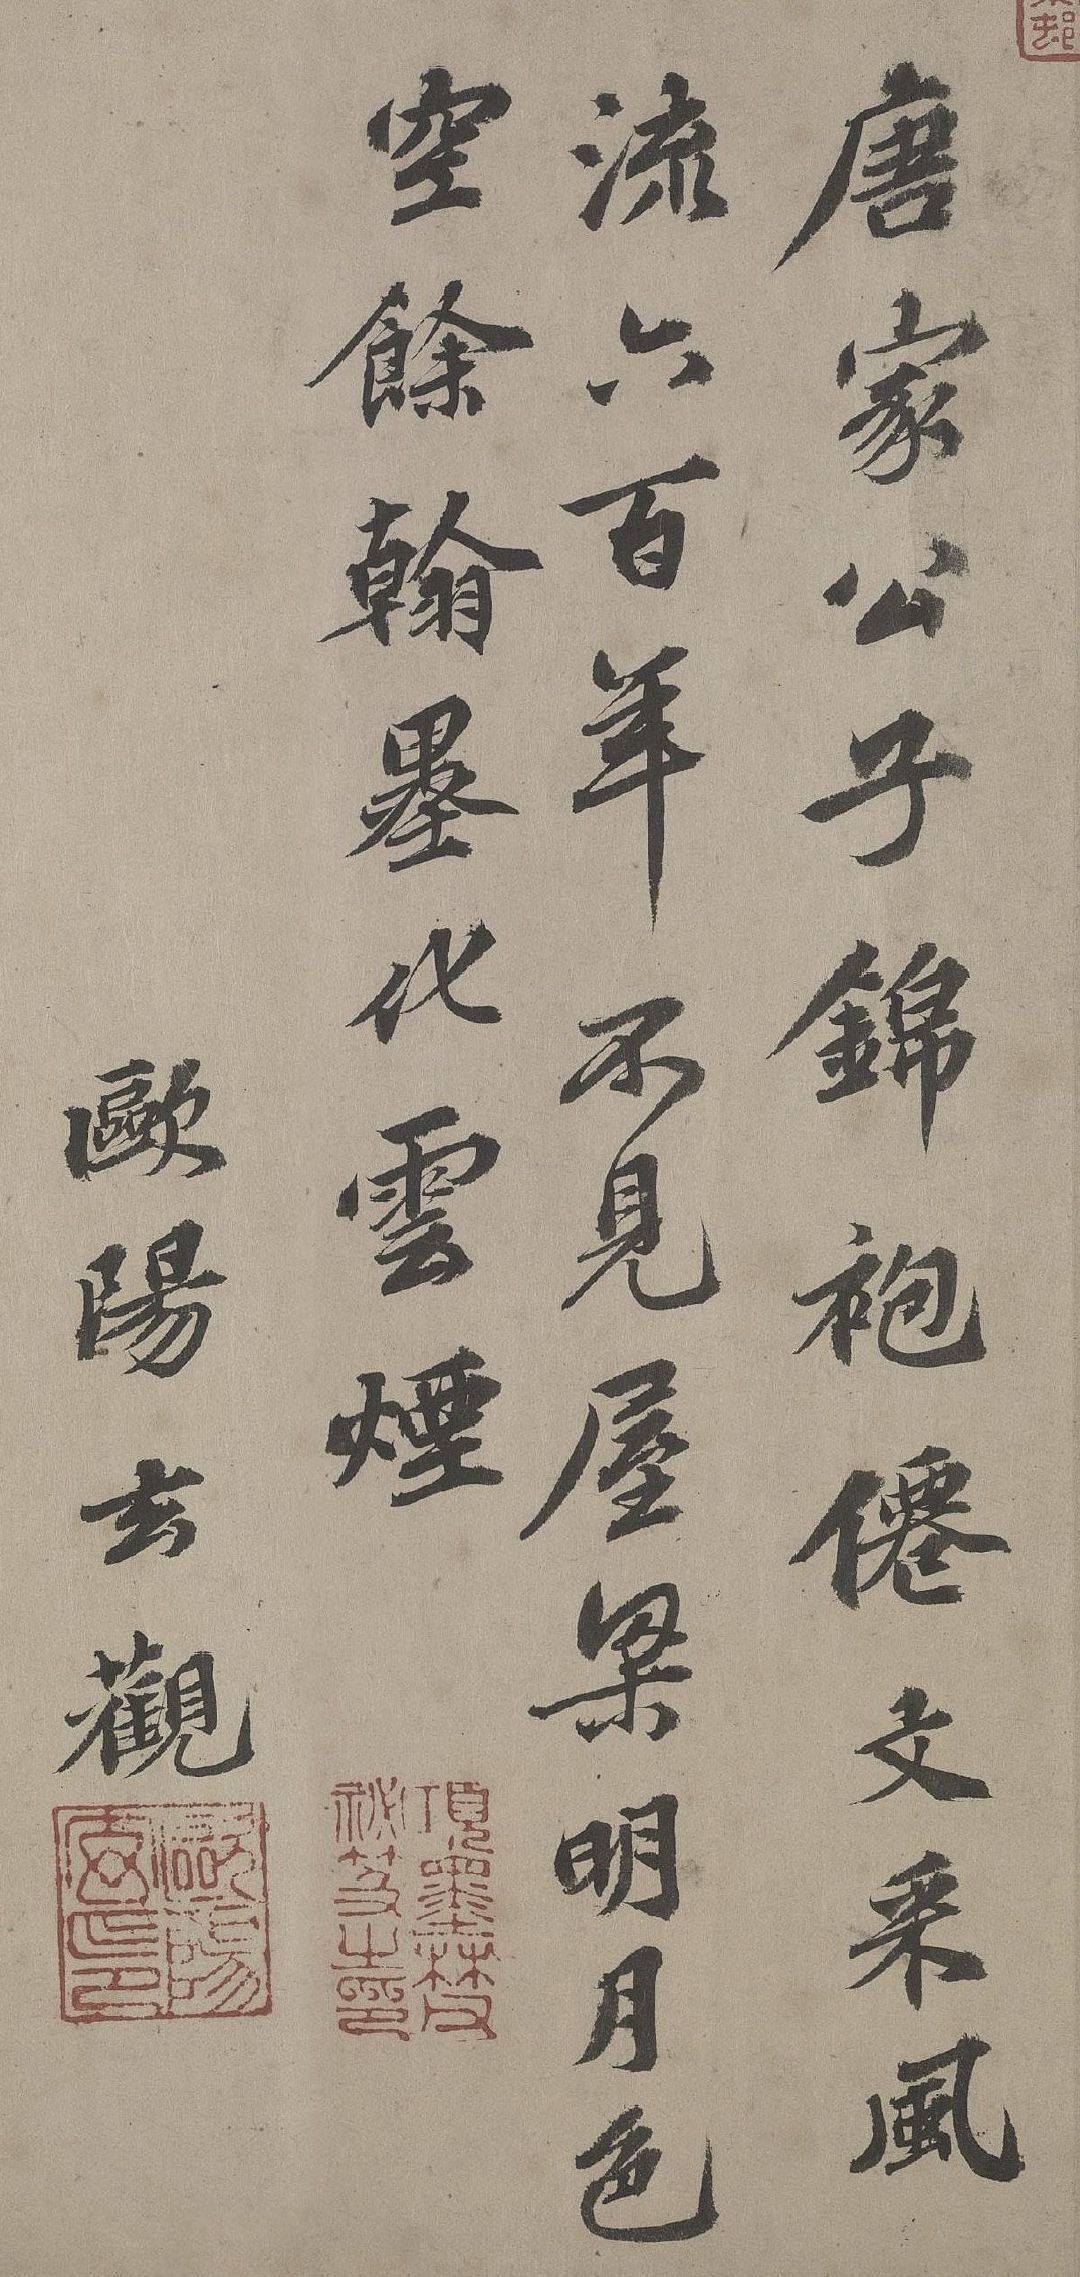 唐家公子錦袍僊文采風
流六百年不見屋梁明月色
空餘翰墨化雲煙
歐陽玄觀
項墨林父
祕笈之印